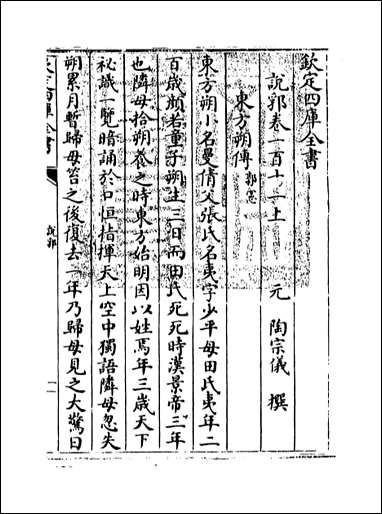 欽定四庫全書
說郛卷一百十一上
元 陶宗儀 撰
東方朔傳 郭憲
東方朔小名曼倩父張氏名夷字少平母田氏夷年二
百歲顔若童子朔生三日而田氏死死時漢景帝三年
也隣母拾朔養之時東方始明因以姓焉年三歲天下
祕識一覽暗誦於口恒指揮天上空中獨語隣母忽失
朔累月暫歸母笞之後復去一年乃歸母見之大驚曰
說郛
一